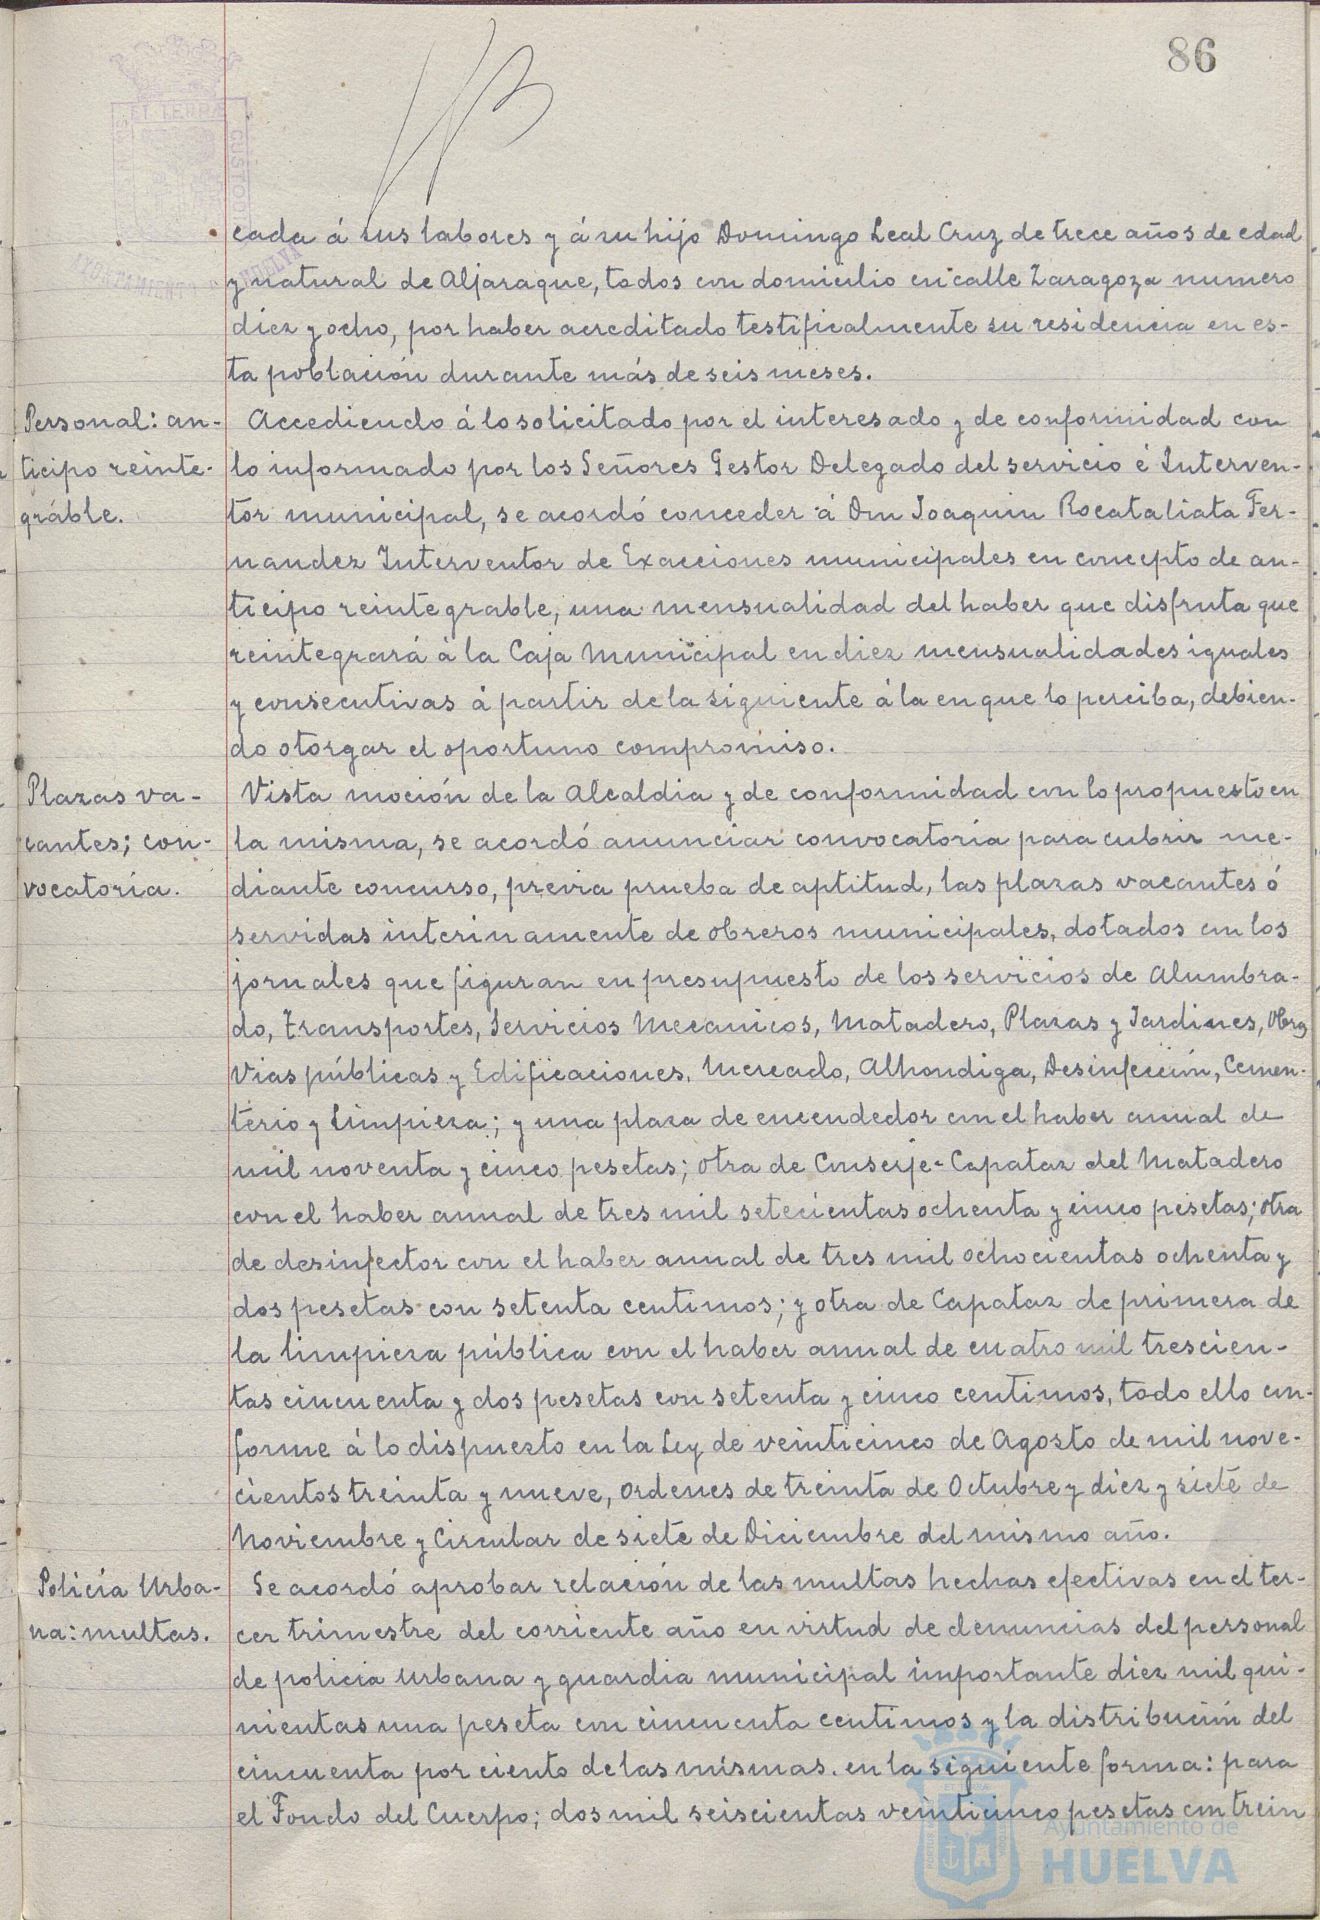 86
ET TERRÆ
CUSTODIA
AYUNTAMIENTO DE HUELVA
cada á sus labores y á su hijo Domingo Leal Cruz de trece años de edad
y natural de Aljaraque, todos con domicilio en calle Zaragoza numero
diez y ocho, por haber acreditado testificalmente su residencia en es-
ta población durante más de seis meses.
Personal: an-
ticipo reinte-
gráble.
Accediendo á lo solicitado por el interesado y de conformidad con
lo informado por los Señores Gestor Delegado del servicio é Interven-
tor municipal, se acordó conceder á Don Joaquin Rocataliata Fer-
nandez Interventor de Exacciones municipales en concepto de an-
ticipo reintegrable, una mensualidad del haber que disfruta que
reintegrará á la Caja Municipal en diez mensualidades iguales
y consecutivas á partir de la siguiente á la en que lo perciba, debien-
do otorgar el oportuno compromiso.
Plazas va-
cantes; con-
vocatoria.
Vista moción de la Alcaldia y de conformidad con lo propuesto en
la misma, se acordó anunciar convocatoria para cubrir me-
diante concurso, previa prueba de aptitud, las plazas vacantes ó
servidas interinamente de obreros municipales, dotados con los
jornales que figuran en presupuesto de los servicios de Alumbra-
do, Transportes, Servicios Mecanicos, Matadero, Plazas y Jardines, Obras
Vias públicas y Edificaciones, Mercado, Alhondiga, Desinfección, Cemen-
terio y Limpieza; y una plaza de encendedor con el haber anual de
mil noventa y cinco pesetas; otra de Conserje-Capataz del Matadero
con el haber anual de tres mil setecientas ochenta y cinco pesetas; otra
de desinfector con el haber anual de tres mil ochocientas ochenta y
dos pesetas con setenta centimos; y otra de Capataz de primera de
la limpieza pública con el haber anual de cuatro mil trescien-
tas cincuenta y dos pesetas con setenta y cinco centimos, todo ello con-
forme á lo dispuesto en la Ley de veinticinco de Agosto de mil nove-
cientos treinta y nueve, ordenes de treinta de Octubre y diez y siete de
Noviembre y Circular de siete de Diciembre del mismo año.
Policía Urba-
na: multas.
Se acordó aprobar relación de las multas hechas efectivas en el ter-
cer trimestre del corriente año en virtud de denuncias del personal
de policia urbana y guardia municipal importante diez mil qui-
nientas una peseta con cincuenta centimos y la distribución del
cincuenta por ciento de las mismas en la siguiente forma: para
el Fondo del Cuerpo; dos mil seiscientas veinticinco pesetas con trein
Ayuntamiento de
HUELVA